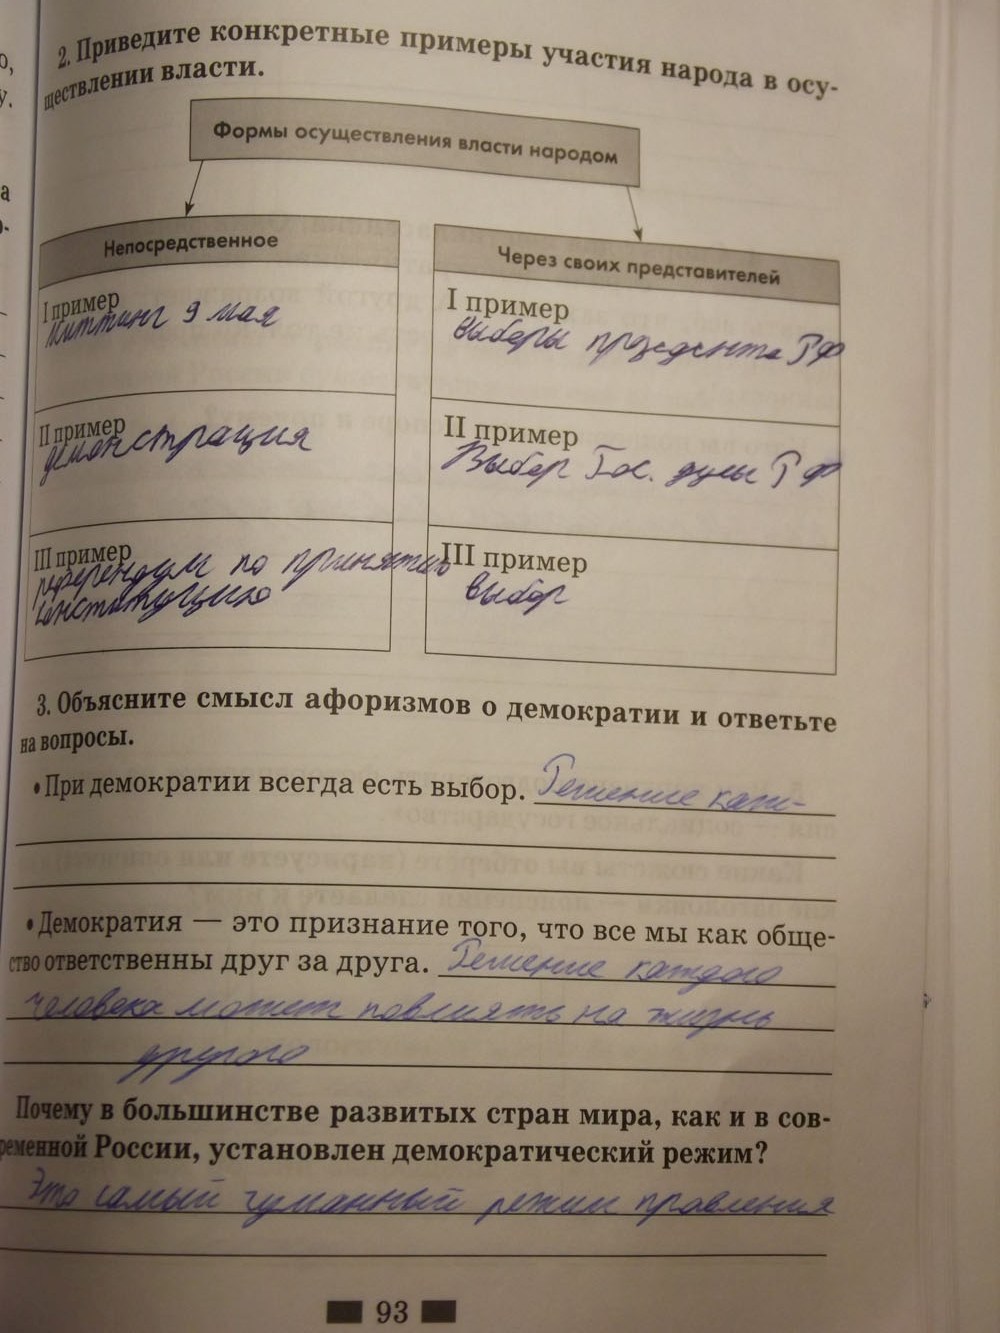 о,
у.
а
о-
2. Приведите конкретные примеры участия народа в осу-
ществлении власти.
Формы осуществления власти народом
Непосредственное
I пример
Миттинг 9 мая
II пример
демонстрация
III пример
референдум по принятию
конституцию
Через своих представителей
I пример
Выборы президента РФ
II пример
Выбор Гос. думы РФ
III пример
выбор
3. Объясните смысл афоризмов о демократии и ответьте
на вопросы.
• При демократии всегда есть выбор. Решение каж-
• Демократия — это признание того, что все мы как обще-
ство ответственны друг за друга. Решение каждого
человека может повлиять на жизнь
другого
Почему в большинстве развитых стран мира, как и в сов-
ременной России, установлен демократический режим?
Это самый гуманный режим правления
93